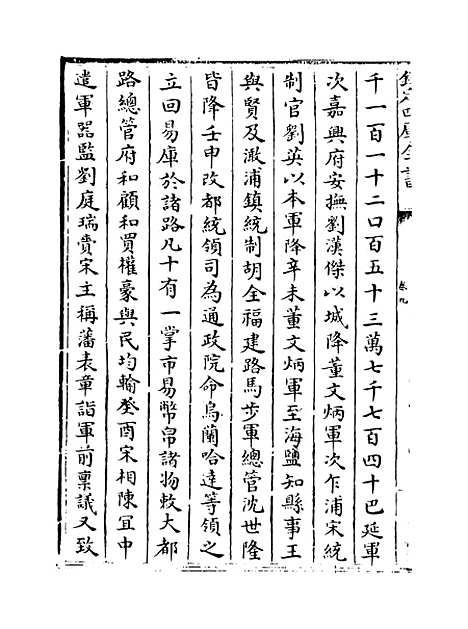 欽定四庫全書
卷九
千一百一十二口百五十三萬七千七百四十巴延軍
次嘉興府安撫劉漢傑以城降董文炳軍次乍浦宋統
制官劉英以本軍降辛未董文炳軍至海鹽知縣事王
與賢及澉浦鎮統制胡全福建路馬步軍總管沈世隆
皆降壬申改都統領司為通政院命烏蘭哈達等領之
立回易庫於諸路凡十有一掌市易幣帛諸物敕大都
路總管府和顧和買權豪與民均輸癸酉宋相陳宜中
遣軍器監劉庭瑞賫宋主稱藩表章詣軍前稟議又致